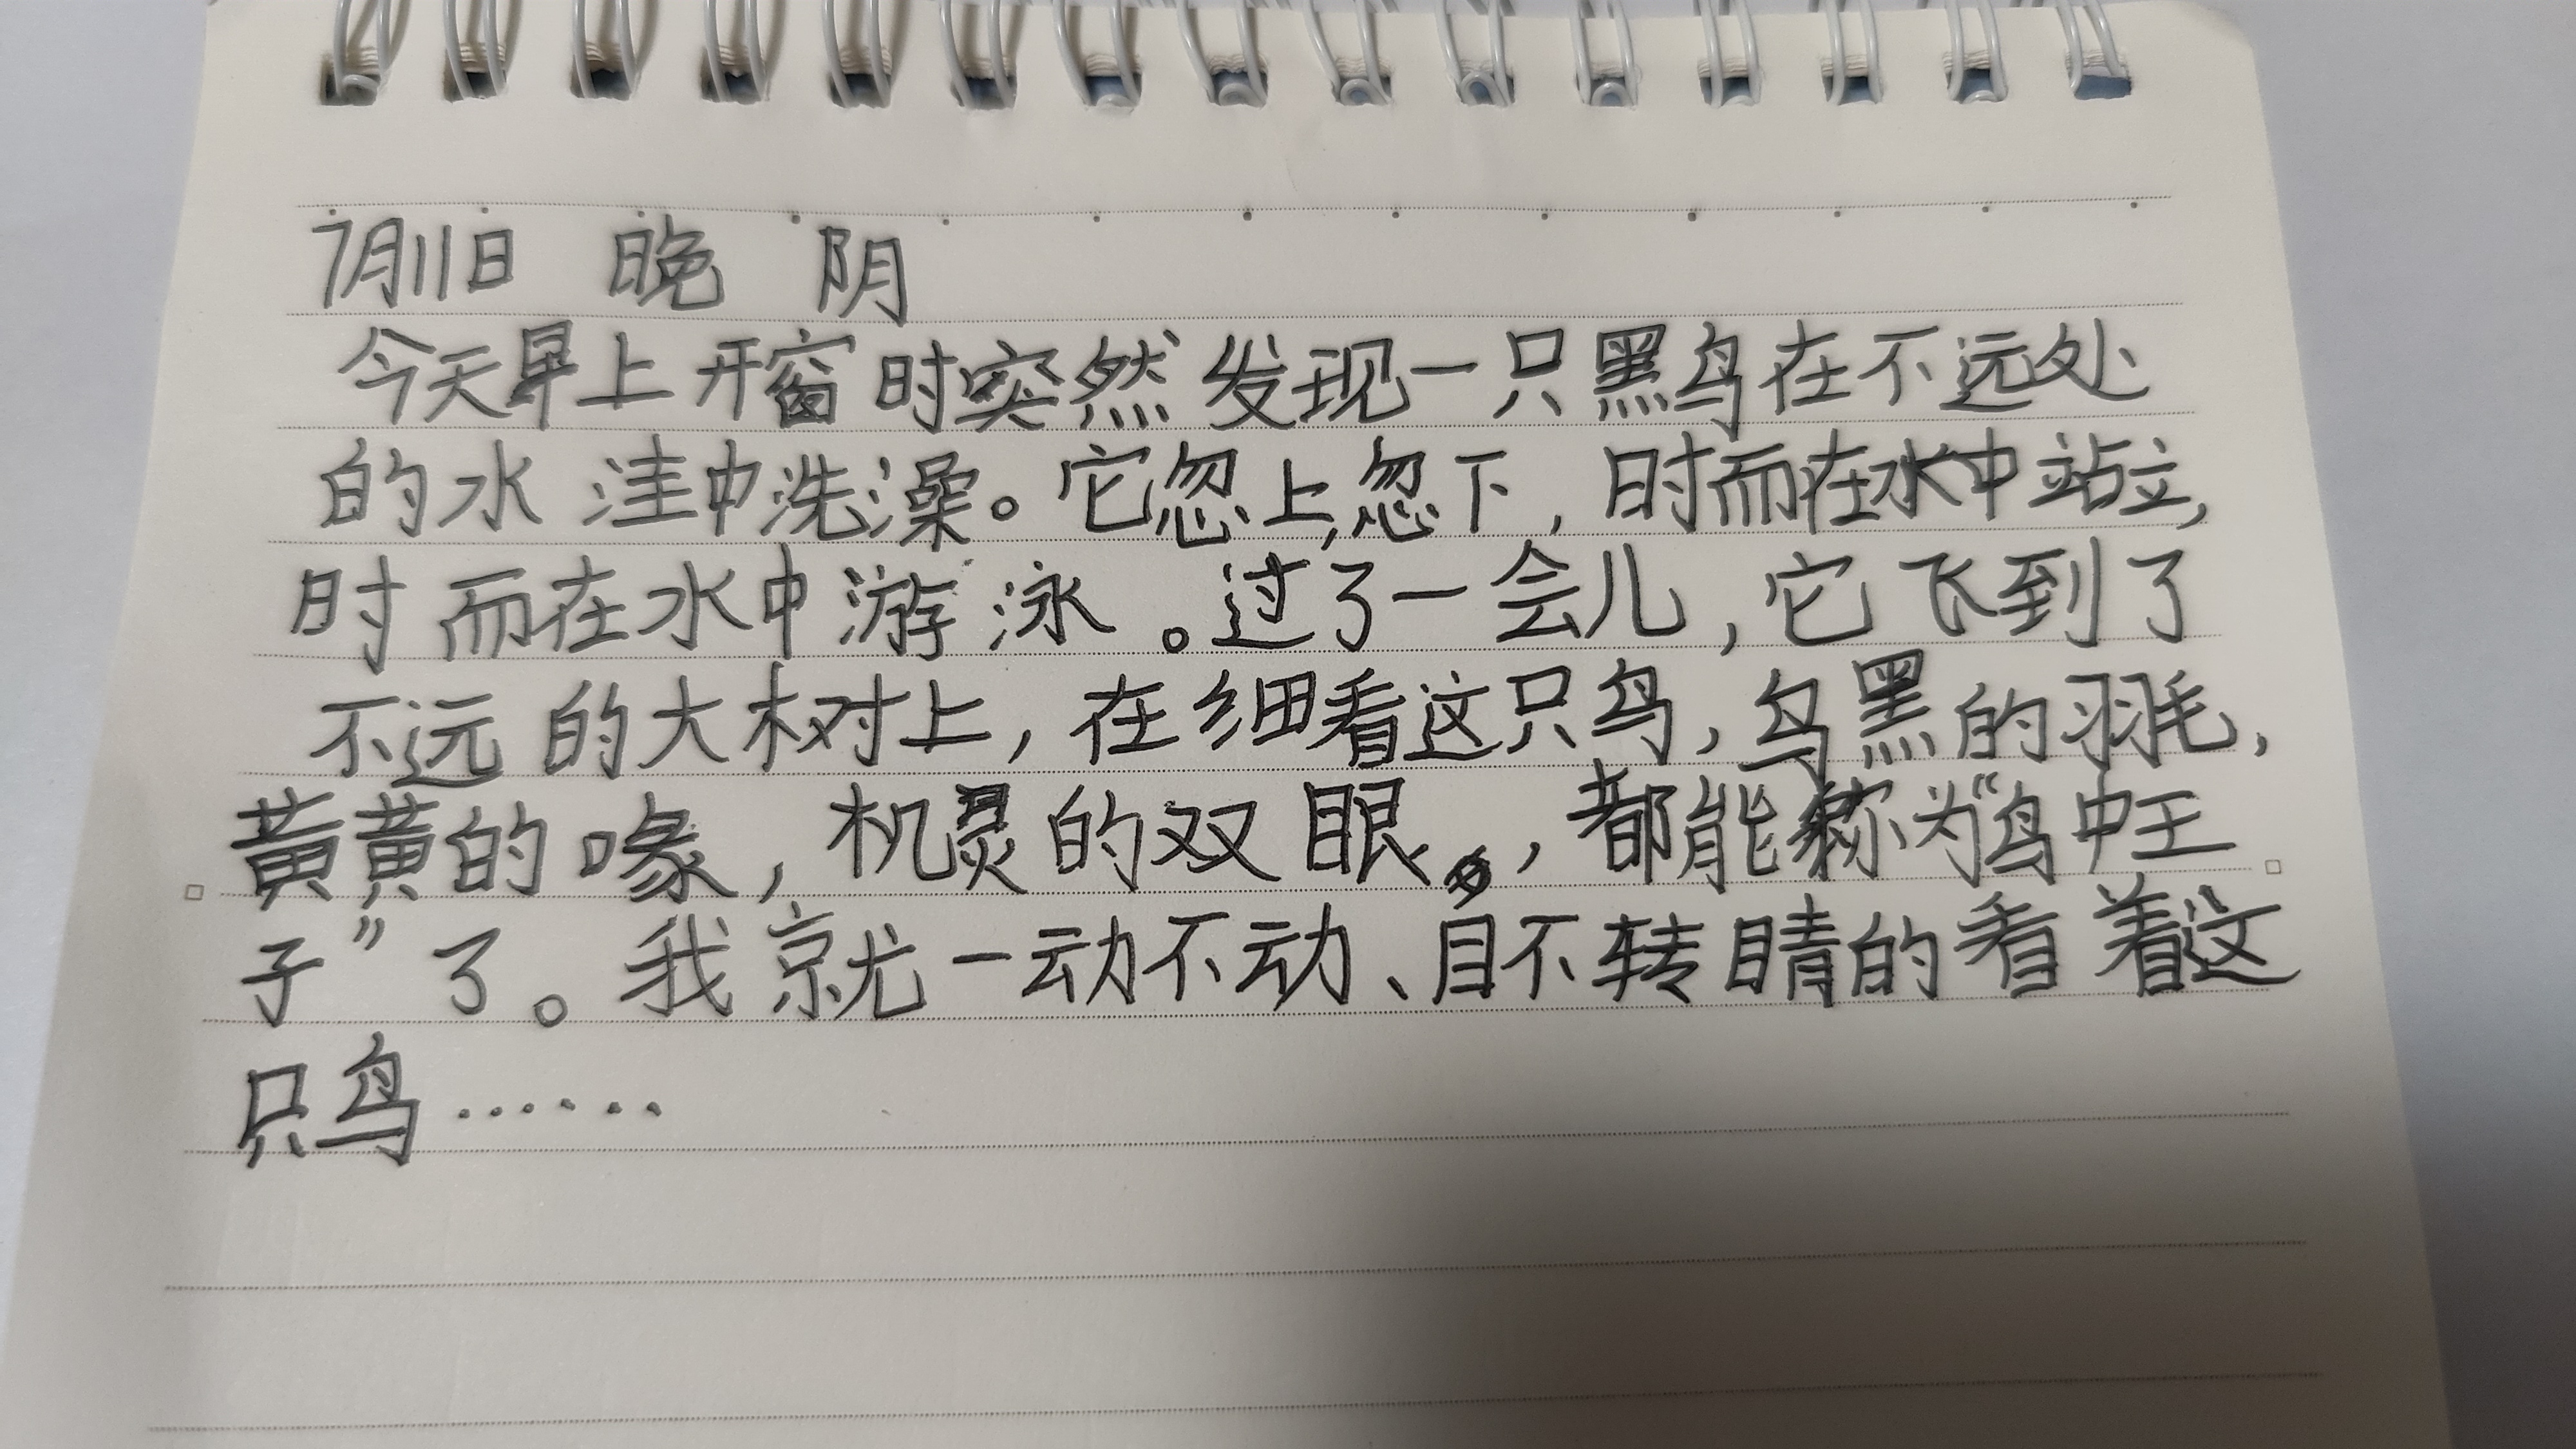 7月11日 晚 阴
今天早上开窗时突然发现一只黑鸟在不远处
的水洼中洗澡。它忽上忽下,时而在水中站立,
时而在水中游泳。过了一会儿,它飞到了
不远的大树上,在细看这只鸟,鸟黑的羽毛,
黄黄的喙,机灵的双眼,都能称为“鸟中王
子”了。我就一动不动、目不转睛的看着这
只鸟……